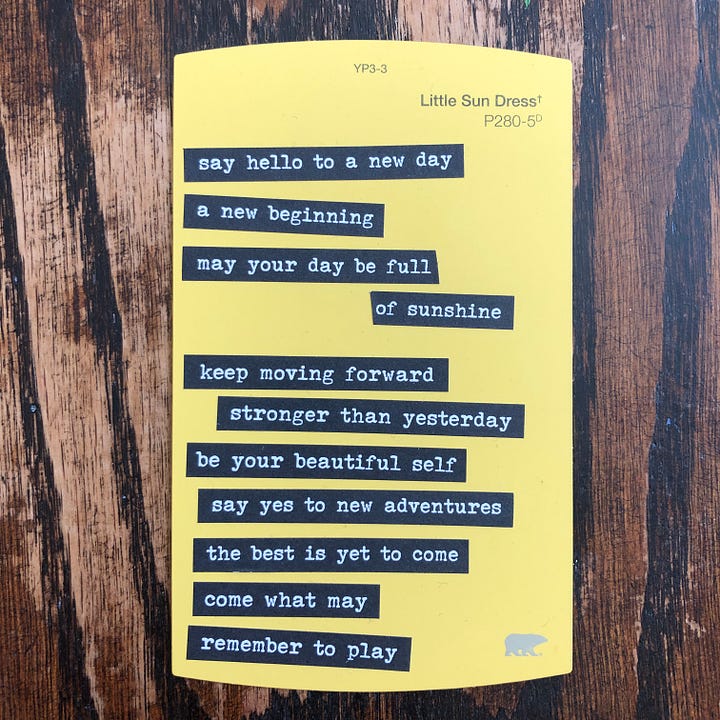 YP3-3
Little Sun Dress†
P280-5ᴰ
say hello to a new day
a new beginning
may your day be full
of sunshine
keep moving forward
stronger than yesterday
be your beautiful self
say yes to new adventures
the best is yet to come
come what may
remember to play